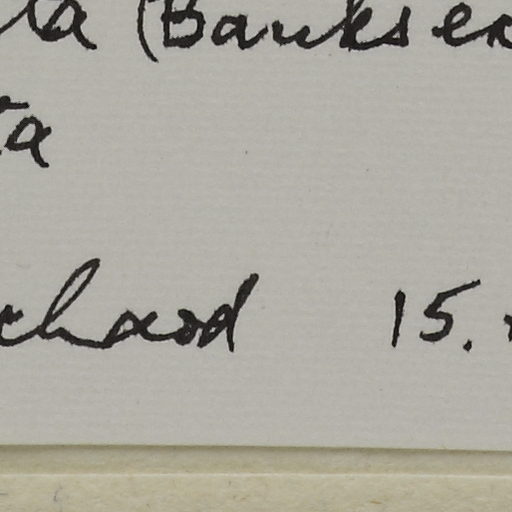 ta (Banks ex
ta
chard 15.